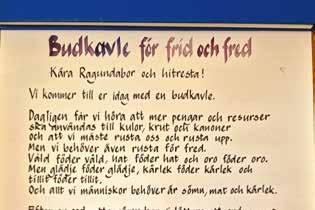 Budkavle för frid och fred
Kära Ragundabor och hitresta!
Vi kommer till er idag med en budkavle.
Dagligen får vi höra att mer pengar och resurser
ska användas till kulor, krut och kanoner
och att vi måste rusta oss och rusta upp.
Men vi behöver även rusta för fred.
Våld föder våld, hat föder hat och oro föder oro.
Men glädje föder glädje, kärlek föder kärlek och
tillit föder tillit.
Och allt vi människor behöver är sömn, mat och kärlek.